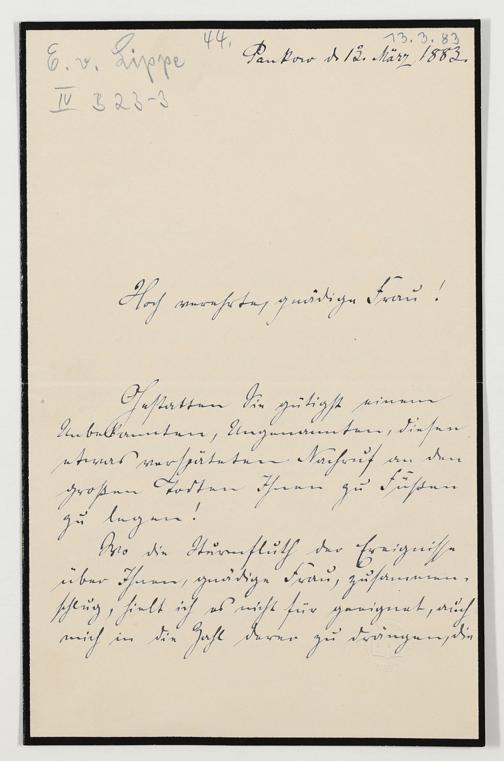 44.
13.3.83
E. v. Lippe
Pankow d. 13. März 1883.
IV B 23-3
Hoch verehrte, gnädige Frau!
Gestatten Sie gütigst einem
Unbekannten, Ungenannten, diesen
etwas verspäteten Nachruf an den
großen Todten Ihnen zu Füßen
zu legen!
Wo die Sturmfluth der Ereignisse
über Ihnen, gnädige Frau, zusammen-
schlug, hielt ich es nicht für geeignet, auch
mich in die Zahl derer zu drängen, die